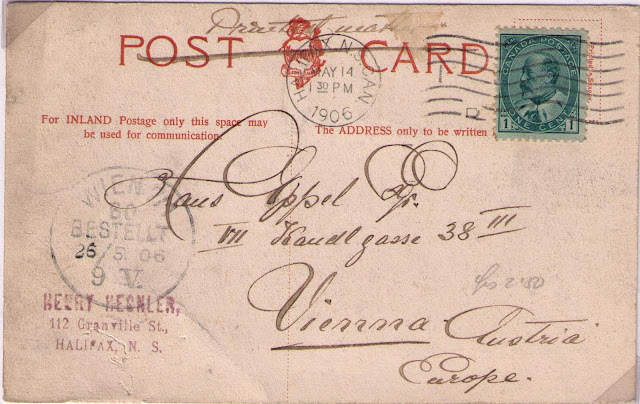 Printed matter
POST CARD
HALIFAX, N.S. CAN.
MAY 14
1 30 PM
1906
CANADA POSTAGE
1 ONE CENT 1
For INLAND Postage only this space may
be used for communication.
The ADDRESS only to be written
Hans Appel
VII Kandlgasse 38 III
Vienna Austria
Europe.
WIEN
BESTELLT
26 5 06
9 V.
HENRY HECHLER,
112 Granville St.,
HALIFAX, N. S.
2.50